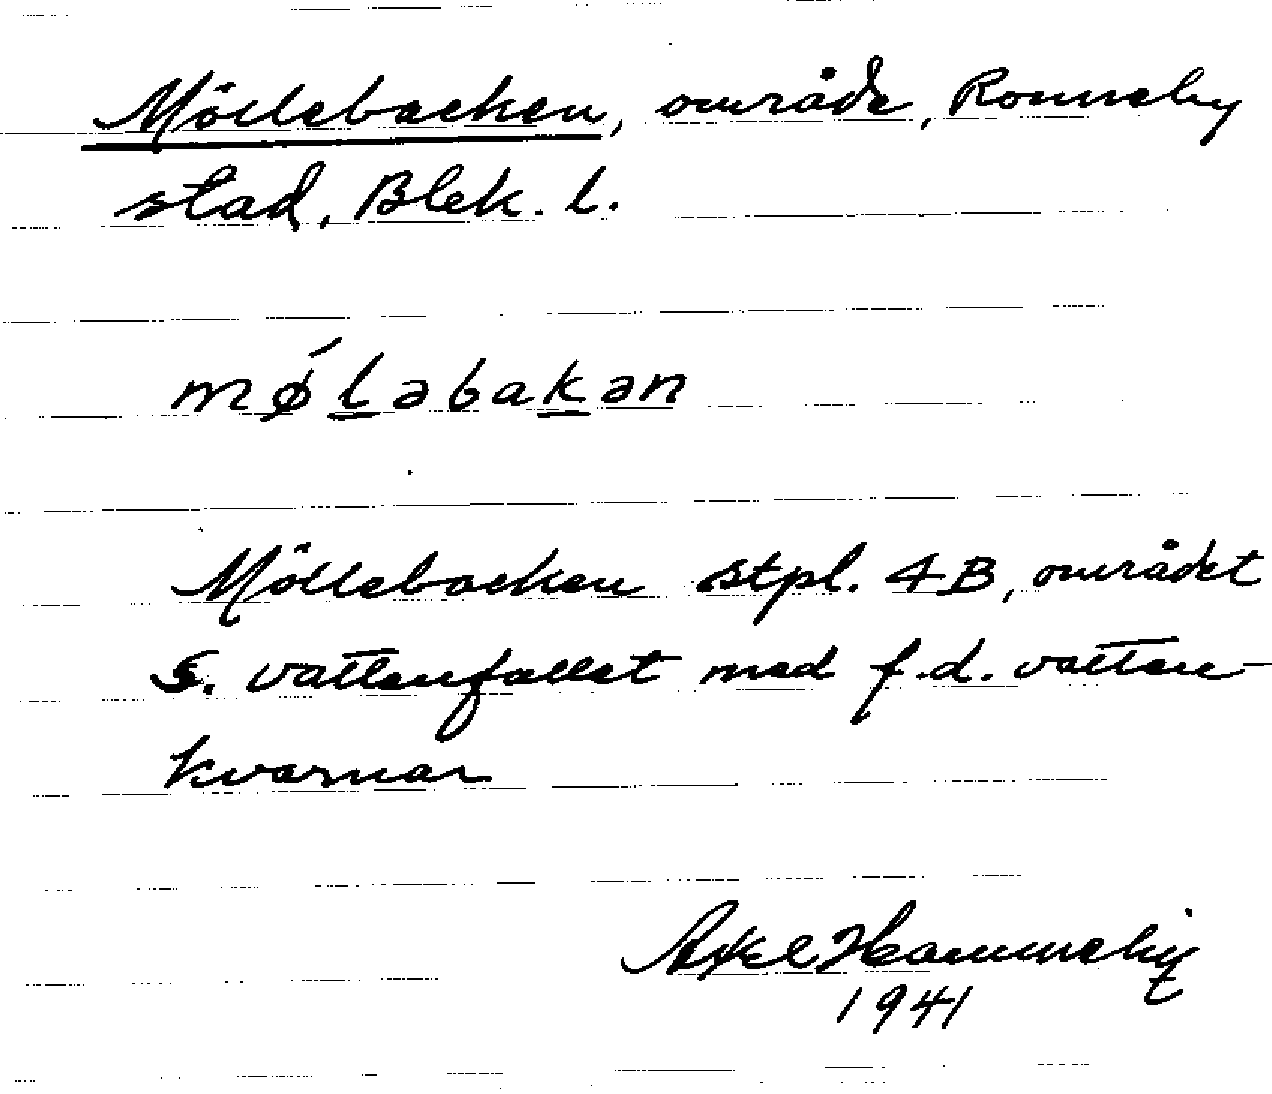 Möllebacken, område, Ronneby
stad, Blek. l.
mǿləbakən
Möllebacken stpl. 4B, området
S. vattenfallet med f.d. vatten-
kvarnar
Axel Hammeby
1941